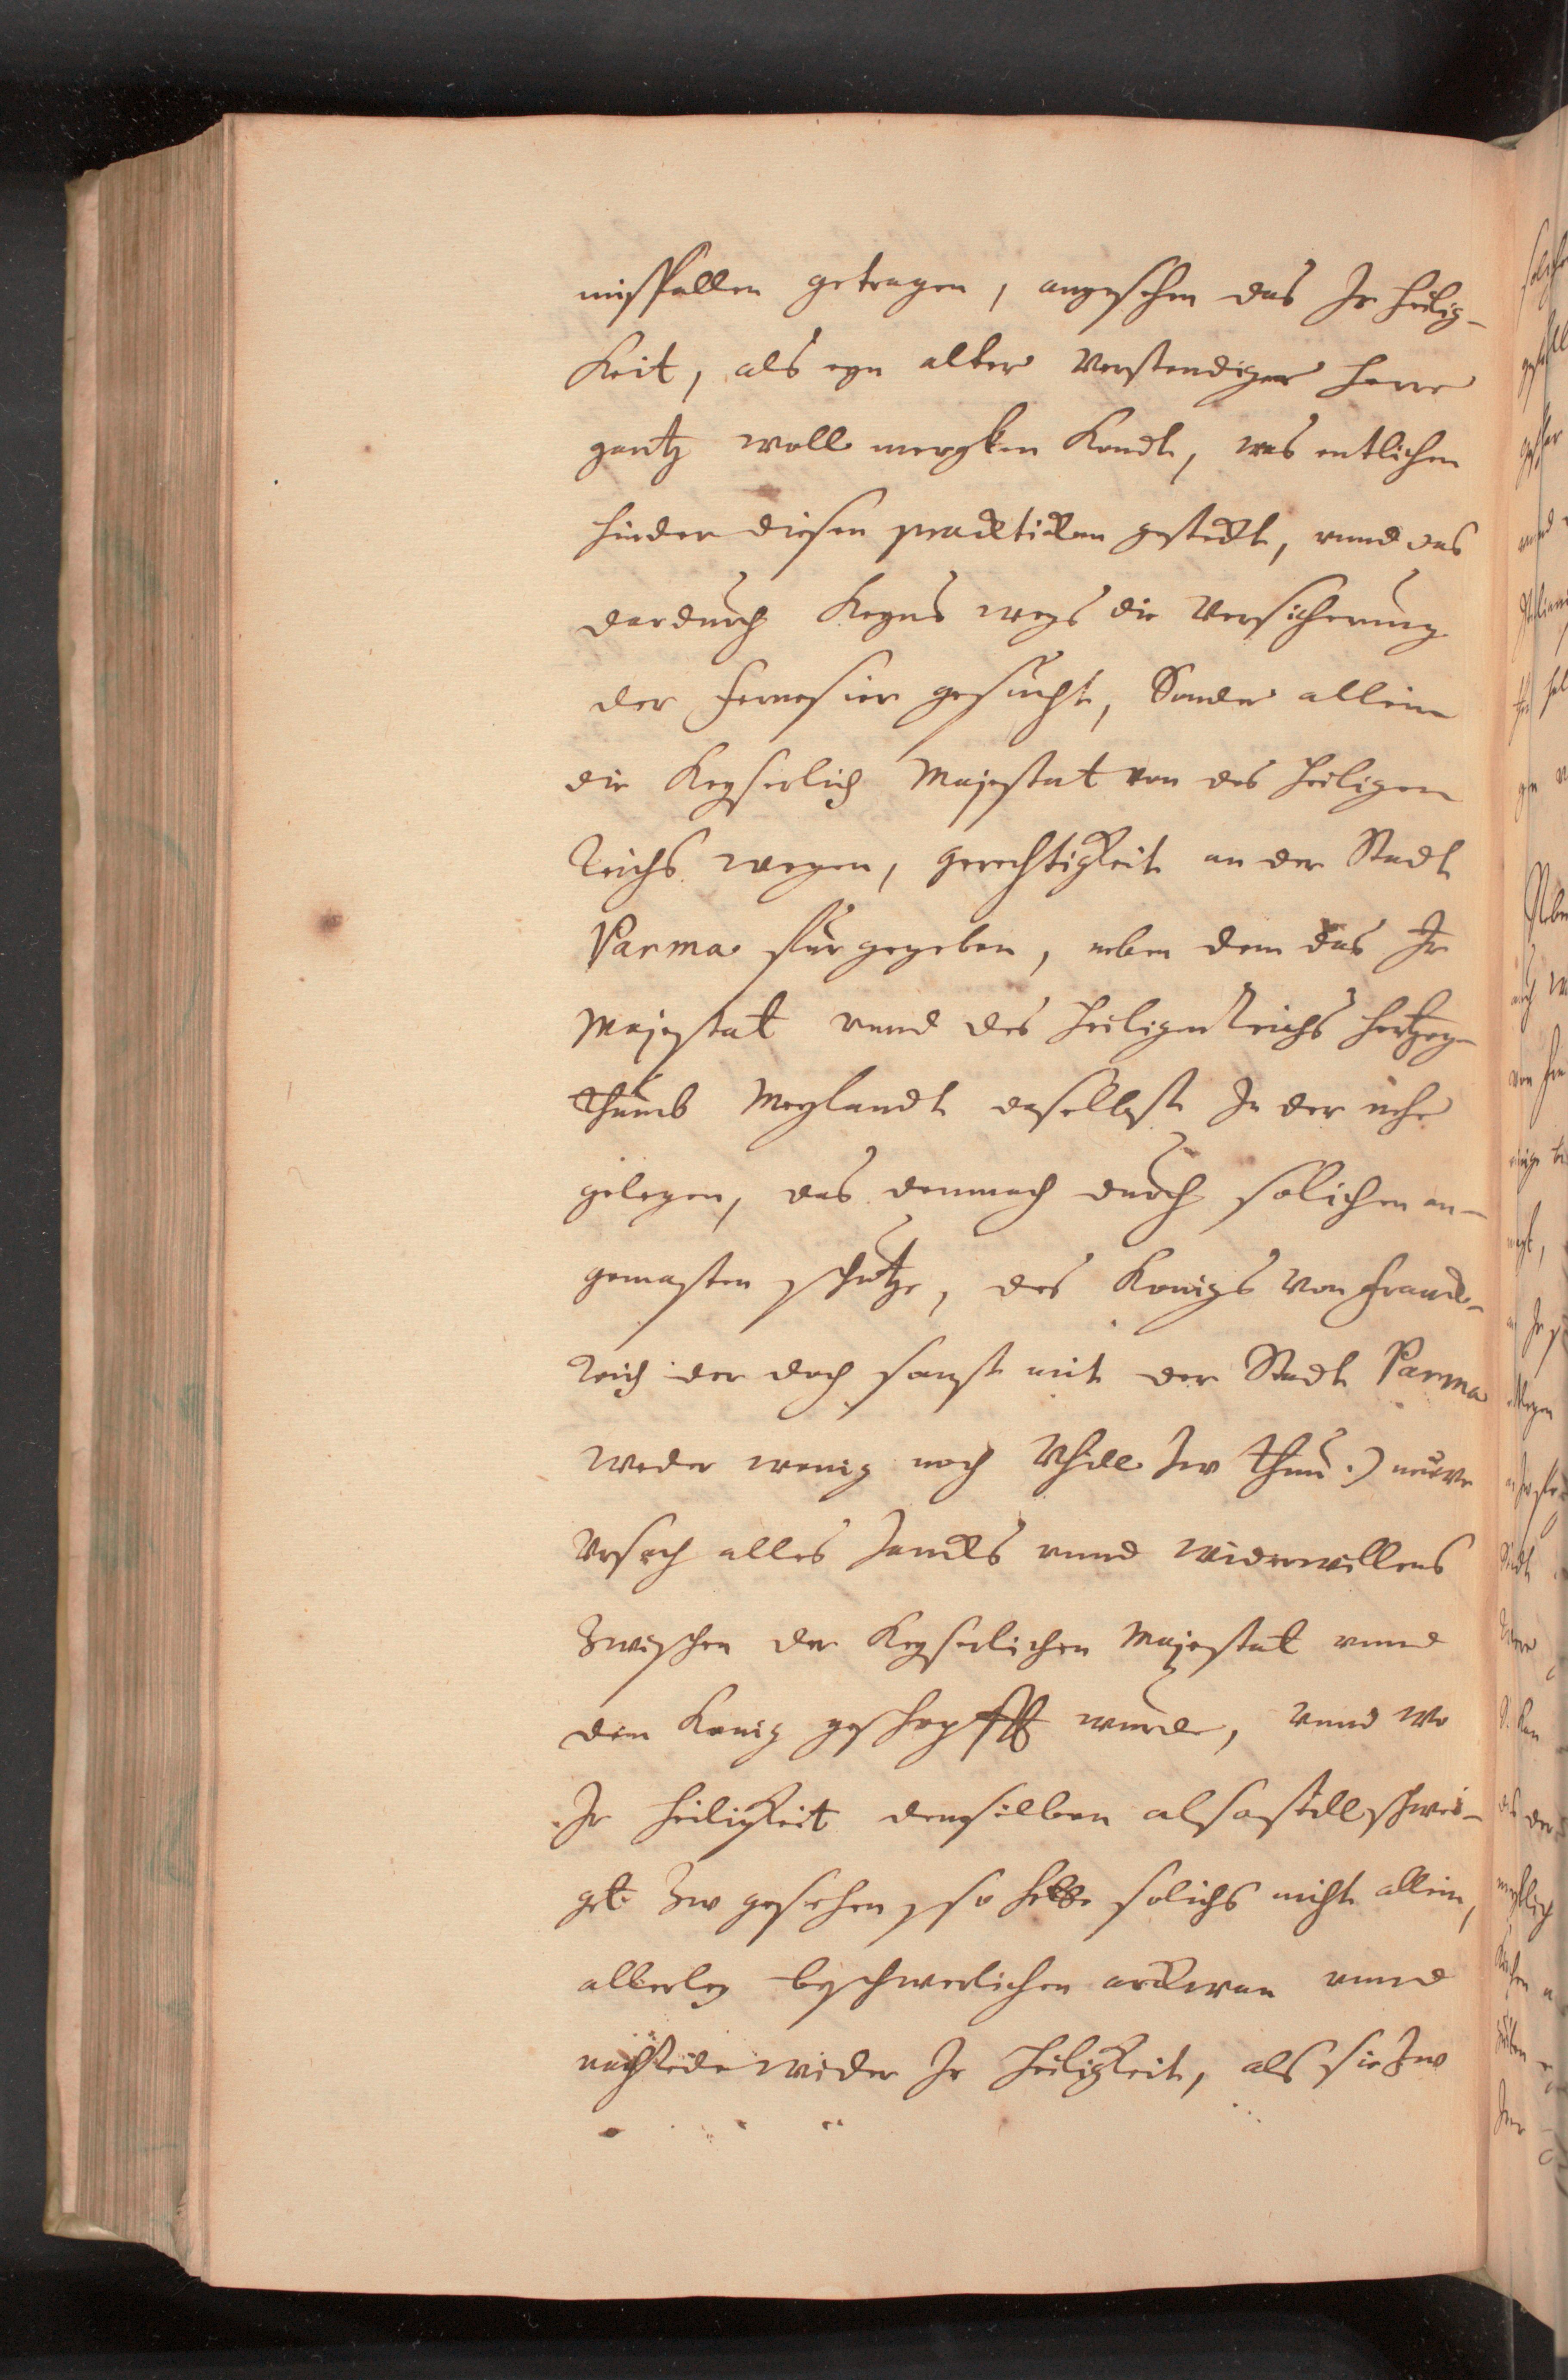 missfallen getragen, angesehen das Ir heilig-
keit, als eyn alter verstendiger herre
gantz woll mergken kondt, was entlichen
hinder diesen practicken gesteckt, unnd das
dardurch keyns wegs die versicherung
der fernesier gesucht, Sonder allein
die Keyserlich Majestat von des heiligen
Reichs wegen, gerechtigkeit an der Stadt
Parma fürgegeben, neben dem das Ir
Majestat unnd des heiligen Reichs hertzog-
thumb Meylandt daselbst In der nehe
gelegen, das demnach durch solichen an-
gemasten schutze, des Konigs von franck-
reich der doch sonst mit der Stadt Parma
weder wenig noch Vhill Zw thun :) neuwe
Vrsach alles Zancks unnd widerwillens
Zwischen der Keyserlichen Majestat unnd
dem Konig geschopfft wurde, unnd wo
Ir heiligkeit demselben also stillschwei-
gt Zw gesehen, so hette solichs nicht allein,
allerley beschwerlichen arckwan unnd
nachrede wider Ir heiligkeit, als sie Zw